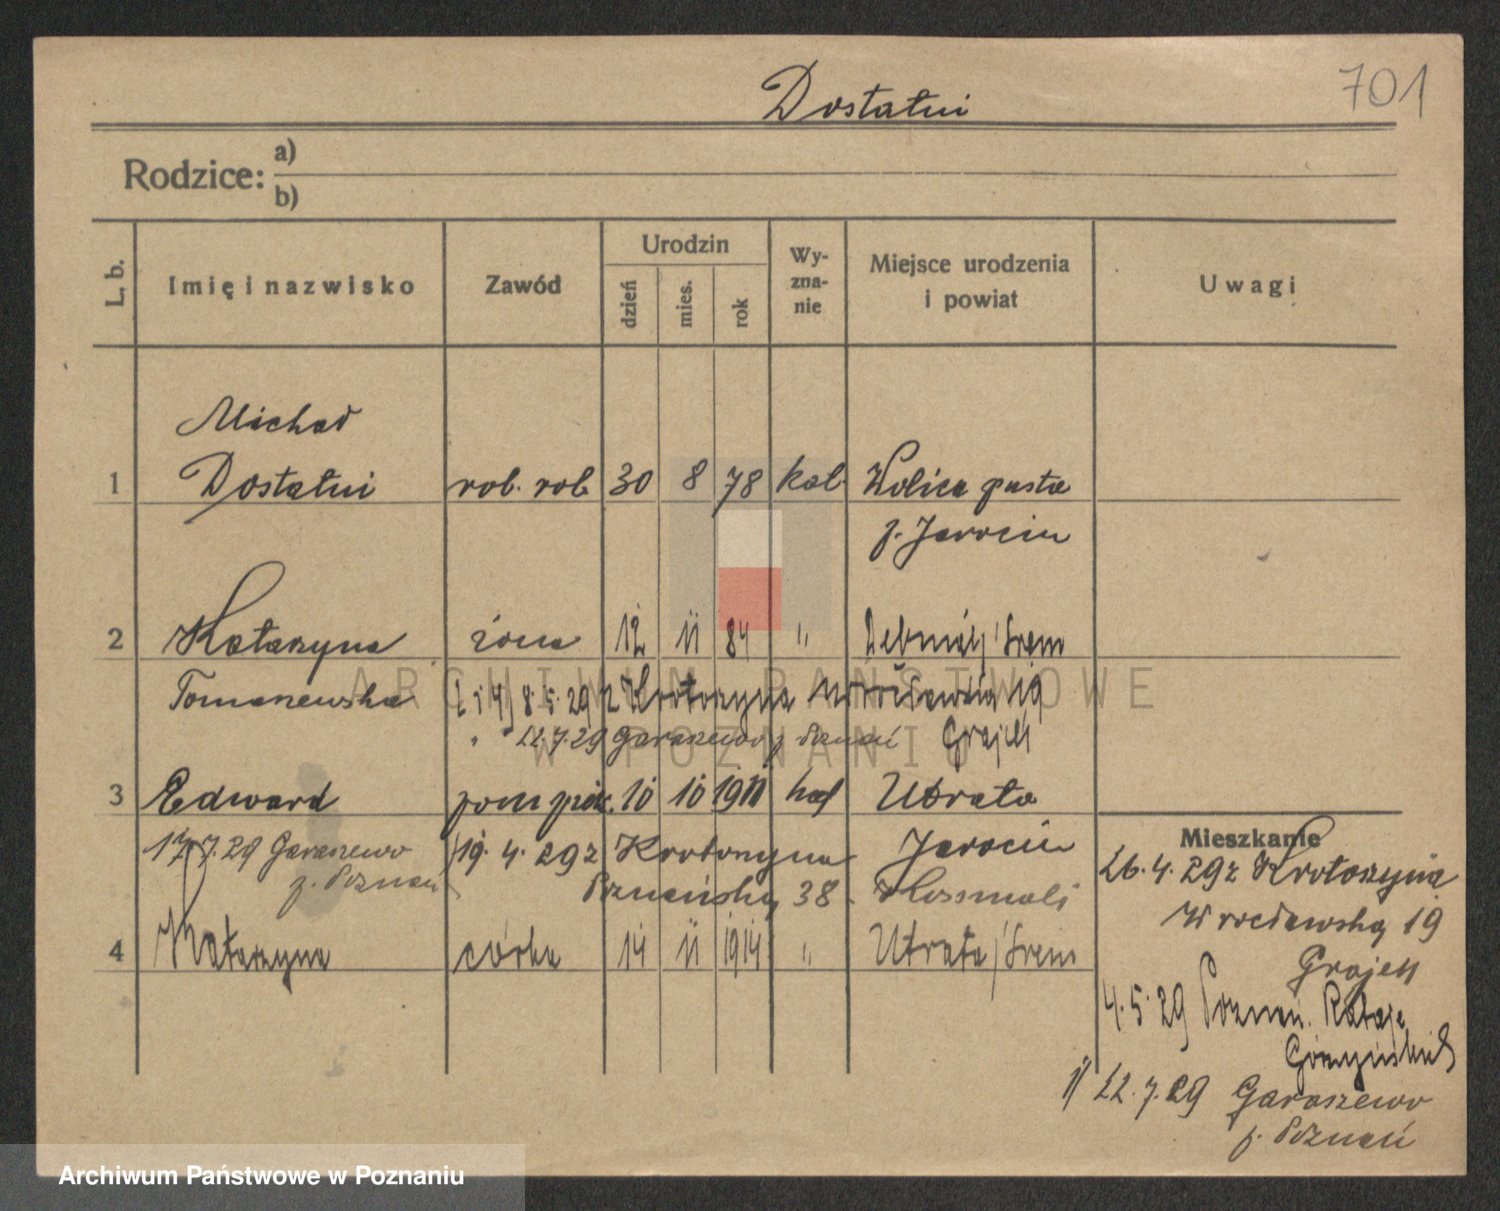 701
Dostatni
Rodzice: a)
b)
L. b. Imię i nazwisko Zawód Urodzin dzień mies. rok Wy-zna-nie Miejsce urodzenia i powiat Uwagi
Michał
1 Dostatni rob. rob. 30 8 78 kat. Wolica pusta
p. Jarocin
2 Katarzyna żona 12 11 84 " Śrem
Tomaszewska 8.5.29 z Krotoszyna 19
22.7.29 Garaszewo p. Poznań
3 Edward 10 10 1911 kat Utrata
17.7.29 Garaszewo 19.4.29 z Krotoszyna Jarocin
p. Poznań Poznańska 38
4 Katarzyna córka 14 11 1914 " Utrata / Śrem
Mieszkanie
26.4.29 z Krotoszyna
Wrocławska 19
4.5.29 Poznań. Rataje
1/ 22.7.29 Garaszewo
p. Poznań
ARCHIWUM PAŃSTWOWE
W POZNANIU
Archiwum Państwowe w Poznaniu